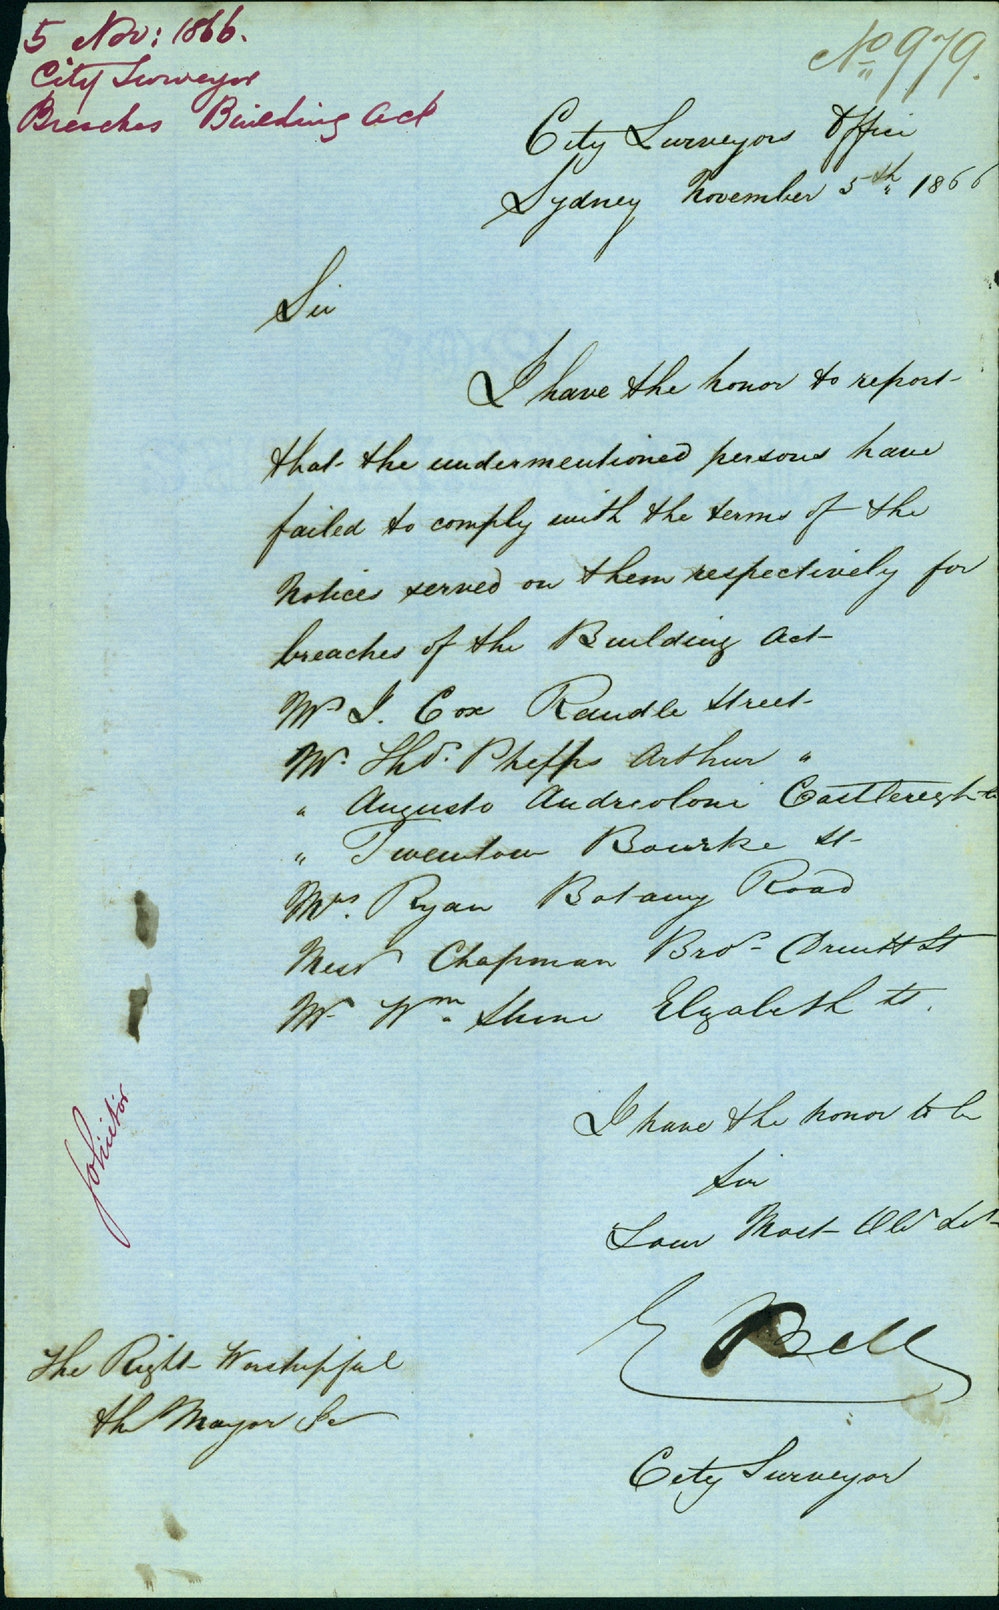 5 Nov: 1866.
City Surveyor
Breaches Building Act
No 979.
City Surveyors Office
Sydney November 5th 1866
Sir
I have the honor to report
that the undermentioned persons have
failed to comply with the terms of the
Notices served on them respectively for
breaches of the Building Act
Mr J. Cox Randle Street
Mr. Thos. Phelps Arthur "
" Augusto Andreoloni Castlereigh St
" Twentow Bourke St
Mrs. Ryan Botany Road
Messrs Chapman Bros Druitt St
Mr Wm. Shine Elizabeth St.
I have the honor to be
Sir
Your Most Obt St
E Bell
City Surveyor
The Right Worshipful
the Mayor &c
Solicitor